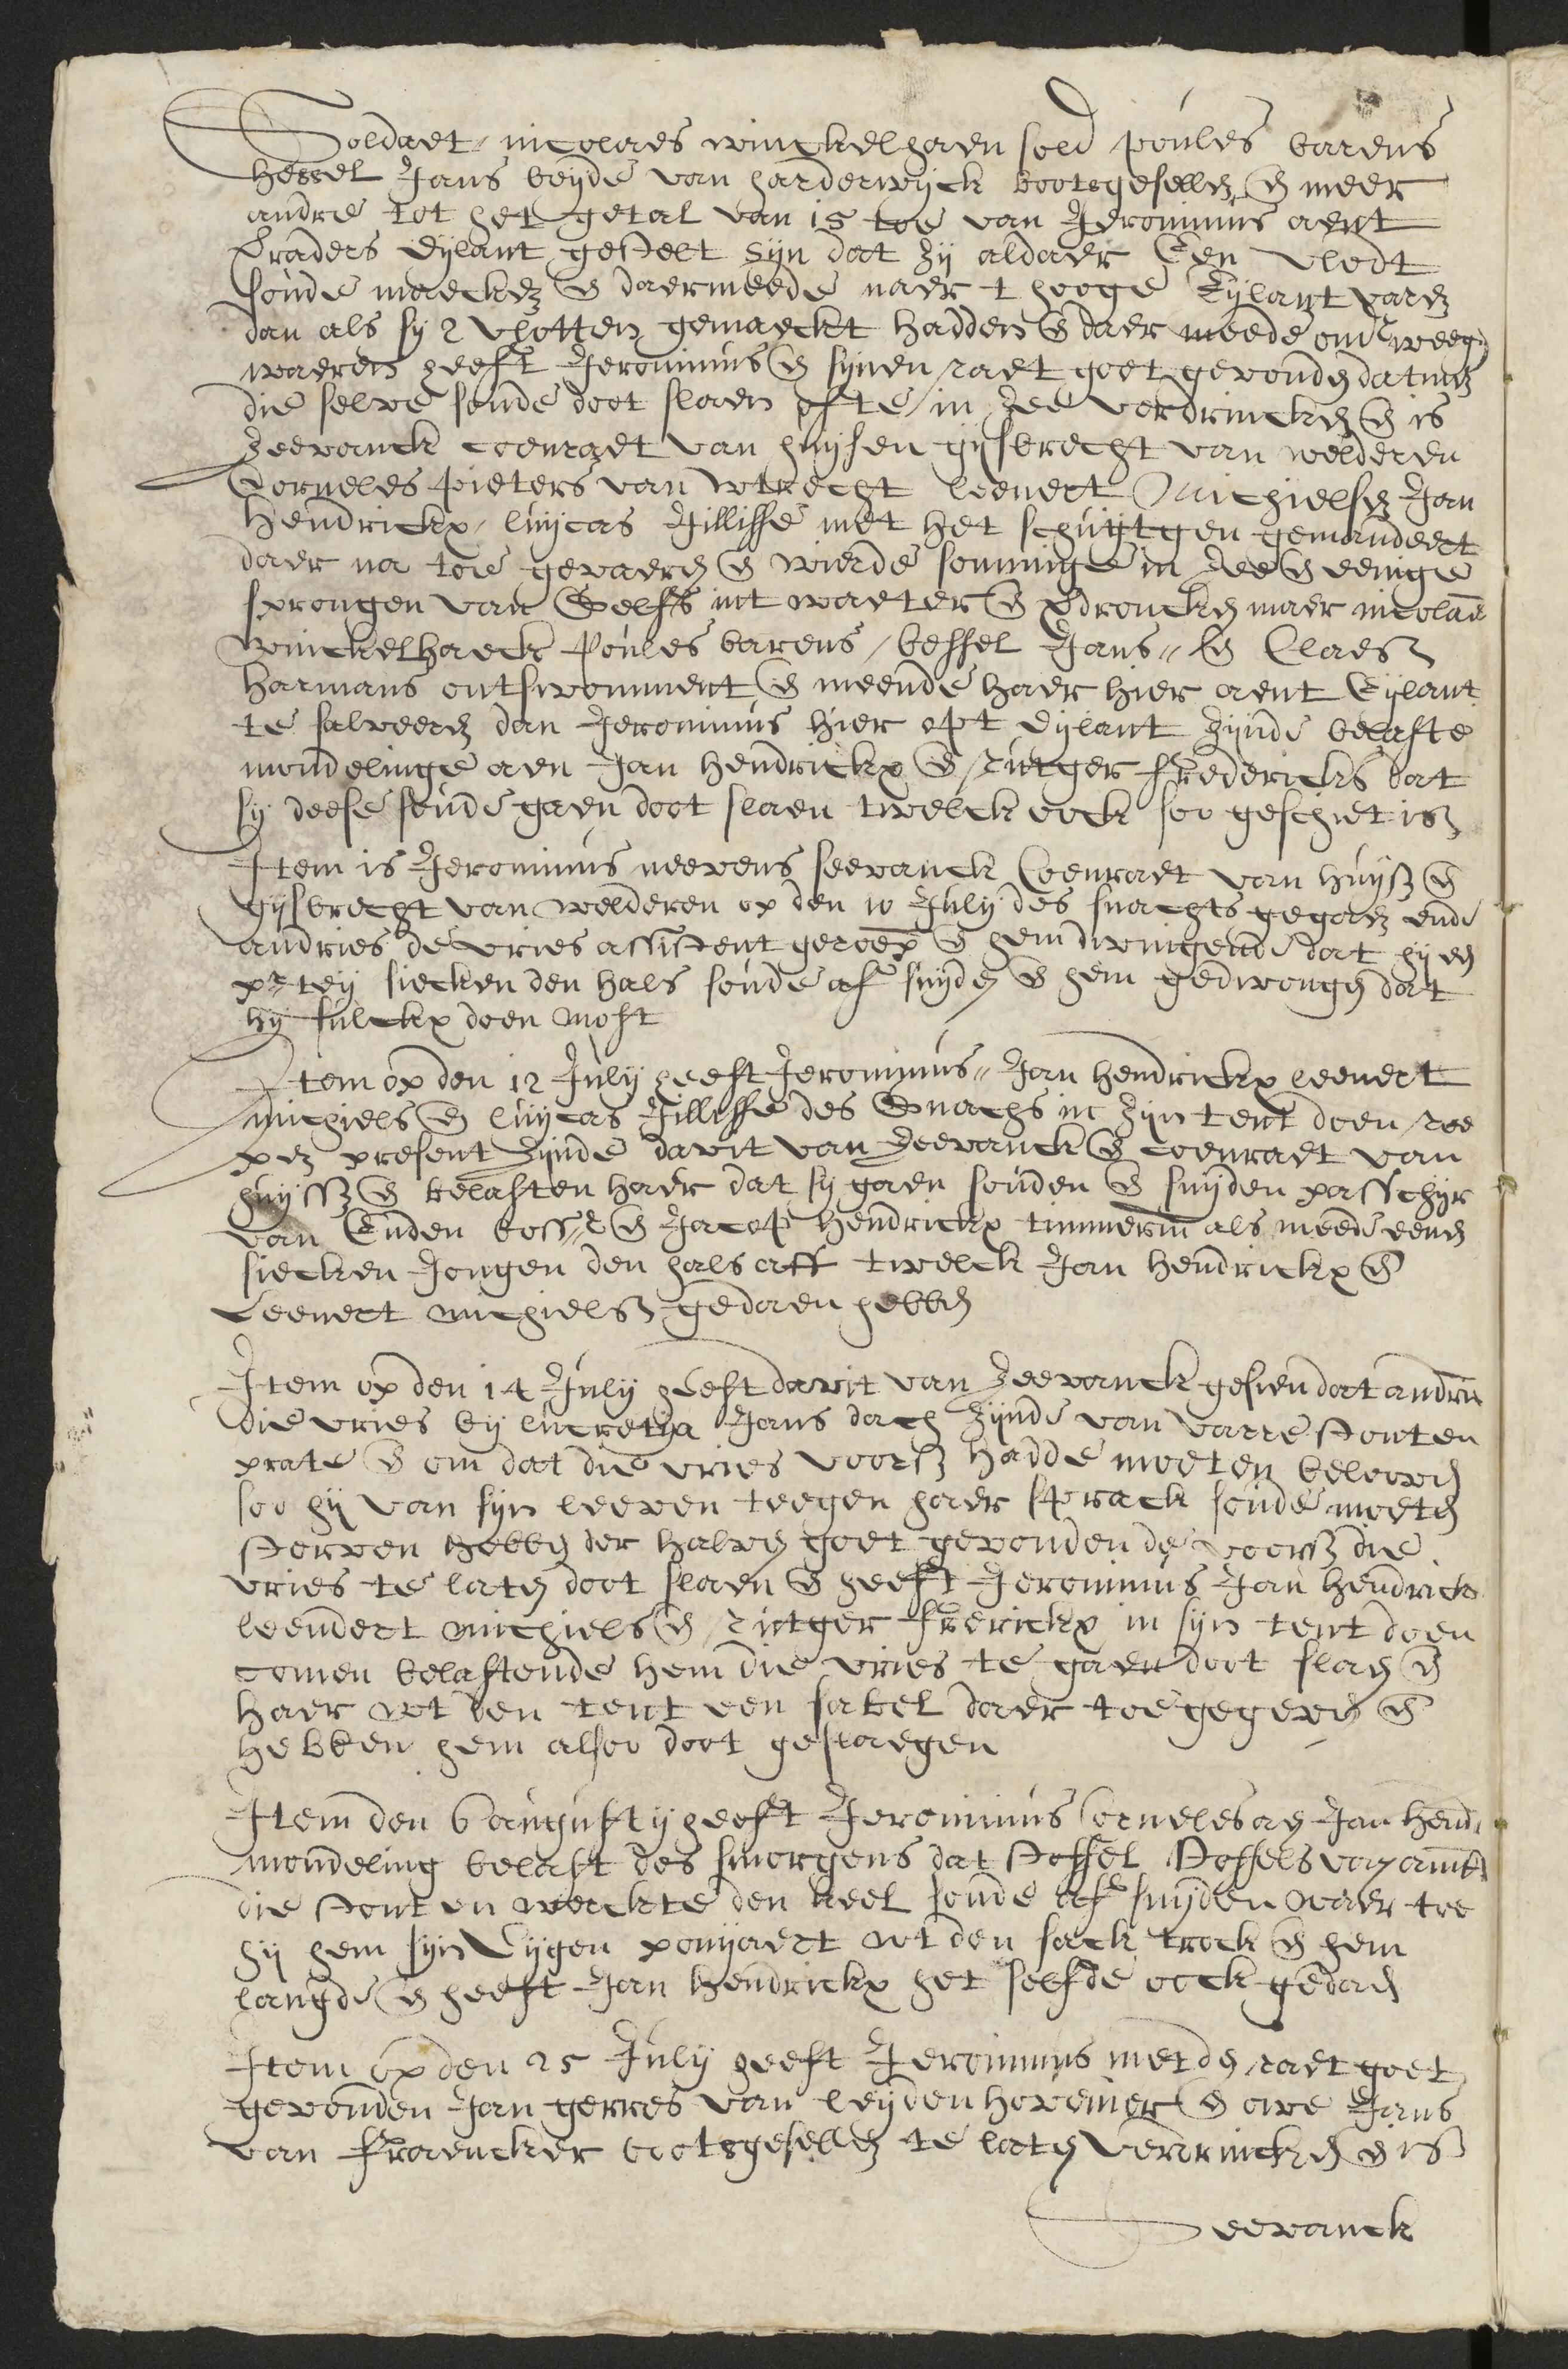 Soldaet, nicolaes winckelhaen sold poules barens
hessel Jans beyde van harderwijck bootsgesellen en meer
andre tot het getal van 15 toe van Jeronimus aent
traders Eylant gestelt syn dat zij aldaer Een vlodt
soude maecken en daermeede naer t hooge Eylant varen
dan als sy 2 vlotten gemaeckt hadden en daer meede onderweeg
waeren heeft Jeronimus en synen raet goet gevonden datmen
die selve soude doot slaen ofte in zee verdrincken en is
Zeevanck coenraet van huysen gysbrecht van welderen
Corneles pieters van wtrecht leenert Michielsen Jan
Hendrickx luycas Jillisse met het schuytgen gemandeert
daer na toe gevaeren en wierde sommige in zee en eenige
sprongen van selfs int waeter en verdroncken maer nicolaes
winckelhaeck poules barens bessel Jans en Claes
Harmans ontswomment en meende haer hier aent Eylant
te salveeren dan Jeronimus hier opt Eylant zynde belaste
mondelinge aen Jan Hendrickx en rutger frederickx dat
sy deese soude gaen doot slaen twelck oock soo geschiet is
Item is Jeronimus neevens seevanck Coenraet van huyssen en
gysbrecht van welderen op den 10 July des snachts gegaen ende
andries de vries assistent geroepen en hem dwingende dat hy een
partey siecken den hals soude af snyden en hem gedwongen dat
hy sulckx doen most
Item op den 12 July heeft Jeronimus Jan Hendrickx leenert
michiels en luycas Jillisse des snachs in zyn tent doen roe
pen present zynde davit van Zeevanck en coenraet van
huyssen en belasten haer dat sy gaen souden en snyden passchier
van Enden bosschieter en Jacop Hendrickx timmerman als meede eenen
siecken Jongen den hals aff twelck Jan Hendrickx en
Leenert michielsen gedaen hebben
Item op den 14 July heeft davit van Zeevanck gesien dat andries
die vries by lucretya Jans dach zynde van varre stont en
prate en om dat die vries voorsz hadde moeten belooven
soo hy van syn leeven teegen haer sprack soude moeten
sterven hebben der halven goet gevonden de voorsz die
vries te laten doot slaen en heeft Jeronimus Jan Hendricks
leendert michiels en rutger frerickx in syn tent doen
comen belastende hem die vries te gaen doot slaen en
haer wt den tent een sabel daer toe gegeven en
hebben hem alsoo doot geslaegen
Item den 6 augusty heeft Jeronimus Corneles aen Jan Hend.
mondeling belast des smorgens dat stoffel stoffels van amst
die stont en werckte den keel soude af snyden waer toe
hy hem syn Eygen ponjaert wt den sack trock en hem
langde en heeft Jan Hendrickx het selfde oock gedaen
Item op den 25 July heeft Jeronimus met den raet goet
gevonden Jan gerres van leyden hovenier en awe Jans
van fraencker bootsgesellen te laten verdrincken en is
Seevanck